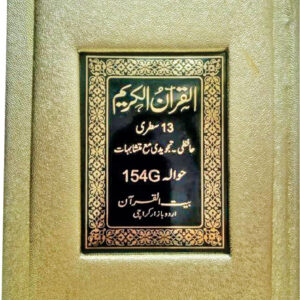 القرآن الكريم
13 سطری
حافظی - تجویدی مع متشابہات
حوالہ 154G
بیت القرآن
اردو بازار کراچی